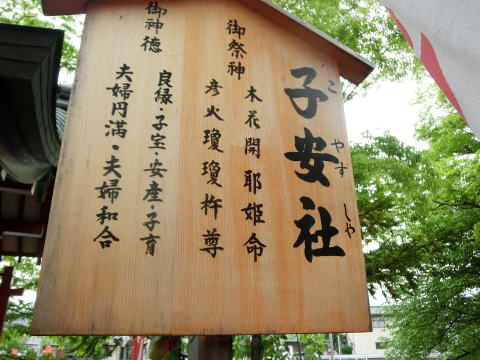 子安社
こやすしや
御祭神
木花開耶姫命
彦火瓊瓊杵尊
御神徳
良縁・子宝・安産・子育
夫婦円満・夫婦和合